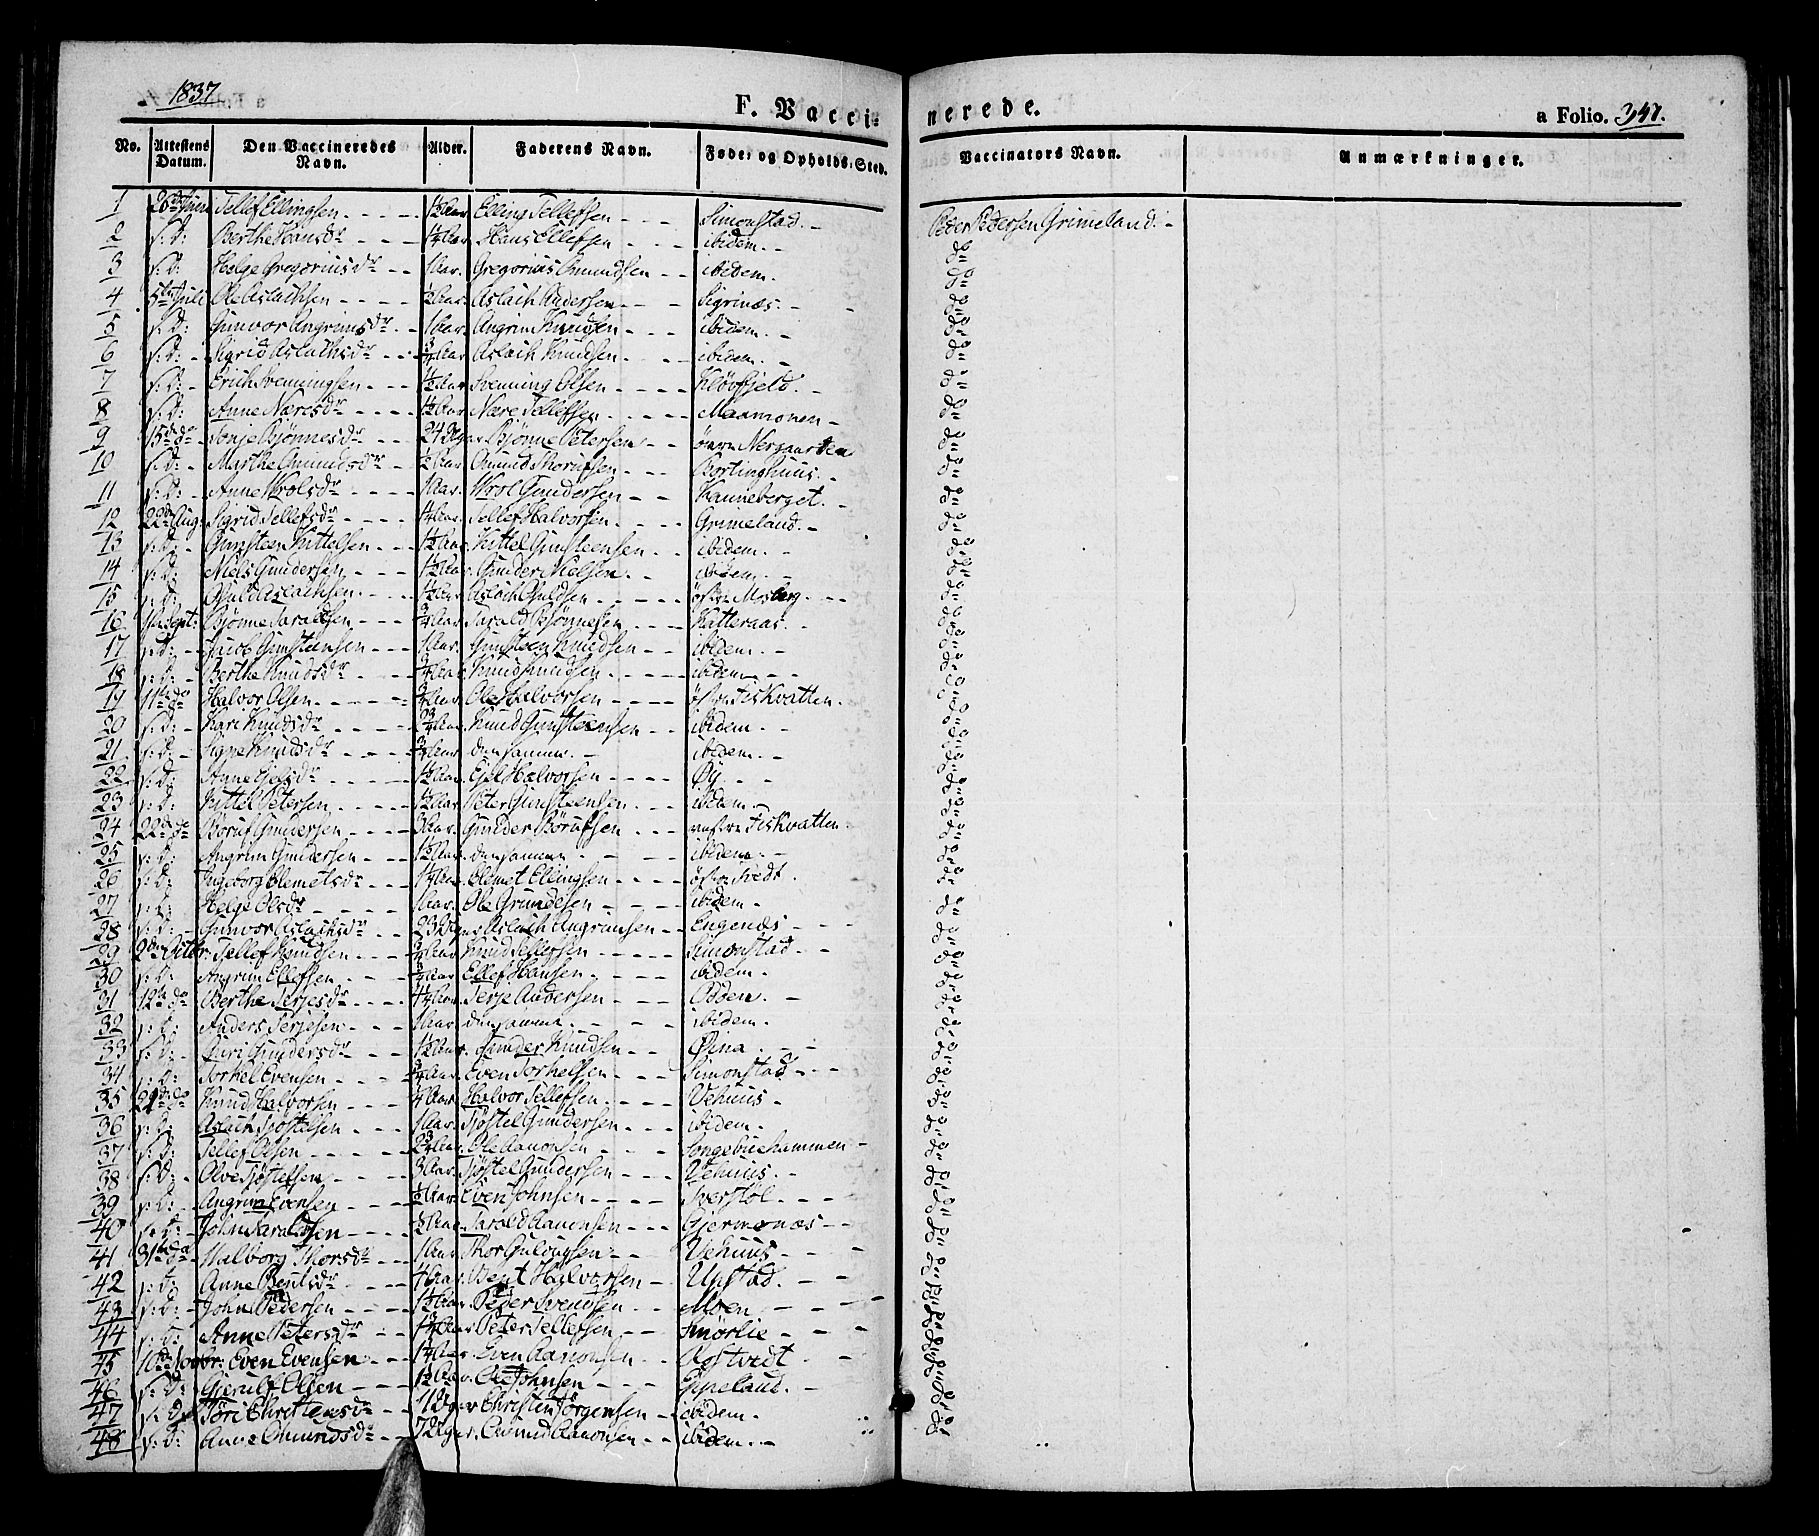 1837
F. Vacci-
nerede.
a Folio. 347.
No. Attestens Datum. Den Vaccineredes Navn. Alder. Faderens Navn. Føde- og Opholds-Sted. Vaccinators Navn. Anmærkninger.
1 26de Juni Tellef Ellingsen 1½ Aar Elling Tellefsen Simonstad. Peder Pedersen Grimeland.
2 s: D: Berthe Hansdr 1¼ Aar Hans Ellefsen ibidem. do
3 s: D: Helge Gregoriusdr 1 Aar. Gregorius Omundsen ibidem. do
4 5te Juli Ole Aslachsen ½ Aar. Aslach Andersen Sigrinæs. do
5 s: D: Gunvor Angrimsdr 1 Aar. Angrim Knudsen ibidem. do
6 s: D: Sigrid Aslachsdr ¾ Aar. Aslach Knudsen ibidem. do
7 s: D: Erich Svenningsen 1½ Aar Svenning Olsen Kløvfjeld. do
8 s: D: Anne Næresdr 1½ Aar Nære Tellefsen Maamonen do
9 15de do Tonje Bjønnesdr 24 Uger Bjønne Petersen øvre Nergaarden do
10 s: D: Marthe Omundsdr ½ Aar Omund Thorufsen Bortinghuus. do
11 s: D: Anne Wrolsdr 1 Aar. Wrol Gundersen Kanneberget. do
12 22de Aug: Sigrid Tellefsdr 1¼ Aar. Tellef Halvorsen Grimeland. do
13 s: D: Gunsteen Kittelsen 1½ Aar. Kittel Gunsteensen ibidem. do
14 s: D: Niels Gundersen 1½ Aar. Gunder Nielsen. ibidem. do
15 s: D: Ouli Aslachsen 1½ Aar. Aslach Ouldsen østre Mosberg. do
16 1ste Sept: Bjønne Taraldsen ¾ Aar. Tarald Bjønnesen Katteraas. do
17 s: D: Jacob Gunsteensen 1 Aar. Gunsteen Knudsen ibidem. do
18 s: D: Berthe Knudsdr ¾ Aar. Knud Knudsen ibidem do
19 11te do Halvor Olsen ¾ Aar. Ole Halvorsen østre Fiskvatten. do
20 s: D: Kari Knudsdr 2¾ Aar. Knud Gunsteensen ibidem. do
21 s: D: Signe Knudsdr ¾ Aar. den samme. ibidem. do
22 s: D: Anne Ejelsdr 1½ Aar. Ejel Halvorsen Øy. do
23 s: D: Kittel Petersen 1½ Aar. Peter Gunsteensen ibidem. do
24 22de do Boruf Gundersen 3 Aar. Gunder Børufsen vestre Fiskvatten. do
25 s: D: Angrim Gundersen 1½ Aar. den samme ibidem. do
26 s: D: Ingeborg Clemetsdr 1½ Aar. Clemet Ellingsen østre Tvedt. do
27 s: D: Helge Olsdr 1 Aar. Ole Gundersen ibidem. do
28 s: D: Gunvor Aslachsdr 23 Uger Aslach Angrimsen Engenæs do
29 2den Octbr: Tellef Knudsen ¾ Aar. Knud Tellefsen Simonstad. do
30 s: D: Angrim Ellefsen ¾ Aar. Ellef Hansen ibidem. do
31 12te do Berthe Terjesdr 4¼ Aar Terje Andersen Odden. do
32 s: D: Anders Terjesen 1 Aar den samme ibidem. do
33 s: D: Guri Gundersdr 1½ Aar. Gunder Knudsen Øina do
34 s: D: Torkel Evensen ¾ Aar. Even Torkelsen Simonstad do
35 21de do Knud Halvorsen ¼ Aar. Halvor Tellefsen Vehuus do
36 s: D: Aslach Tjøstelsen 1 Aar. Tjøstel Gundersen ibidem. do
37 s: D: Tellef Olsen 2¾ Aar. Ole Aanonsen Songebuehammen do
38 s: D: Olve Tjøstelsen 3 Aar. Tjøstel Gundersen Vehuus. do
39 s: D: Angrim Evensen ½ Aar. Even Johnsen Sverstøl. do
40 s: D: John Taraldsen ½ Aar Tarald Aanonsen Gjermonæs do
41 31te do Malborg Thorsdr 1 Aar. Thor Gulougsen Vehuus do
42 s: D: Anne Bentsdr ¼ Aar. Bent Halvorsen Upstad. do
43 s: D: John Pedersen 1½ Aar. Peder Svendsen Moen do
44 s: D: Anne Petersdr 1¾ Aar Peter Tellefsen Smørlie do
45 10de Novbr: Even Evensen 1¼ Aar Even Aanonsen Rostvedt do
46 s: D: Gjerulf Olsen 1½ Aar. Ole Johnsen Eppeland. do
47 s: D: Tøri Christensdr 11 Uger Christen Jørgensen ibidem. do
48 s: D: Anne Omundsdr 7 Uger. Omund Aanonsen ibidem. do